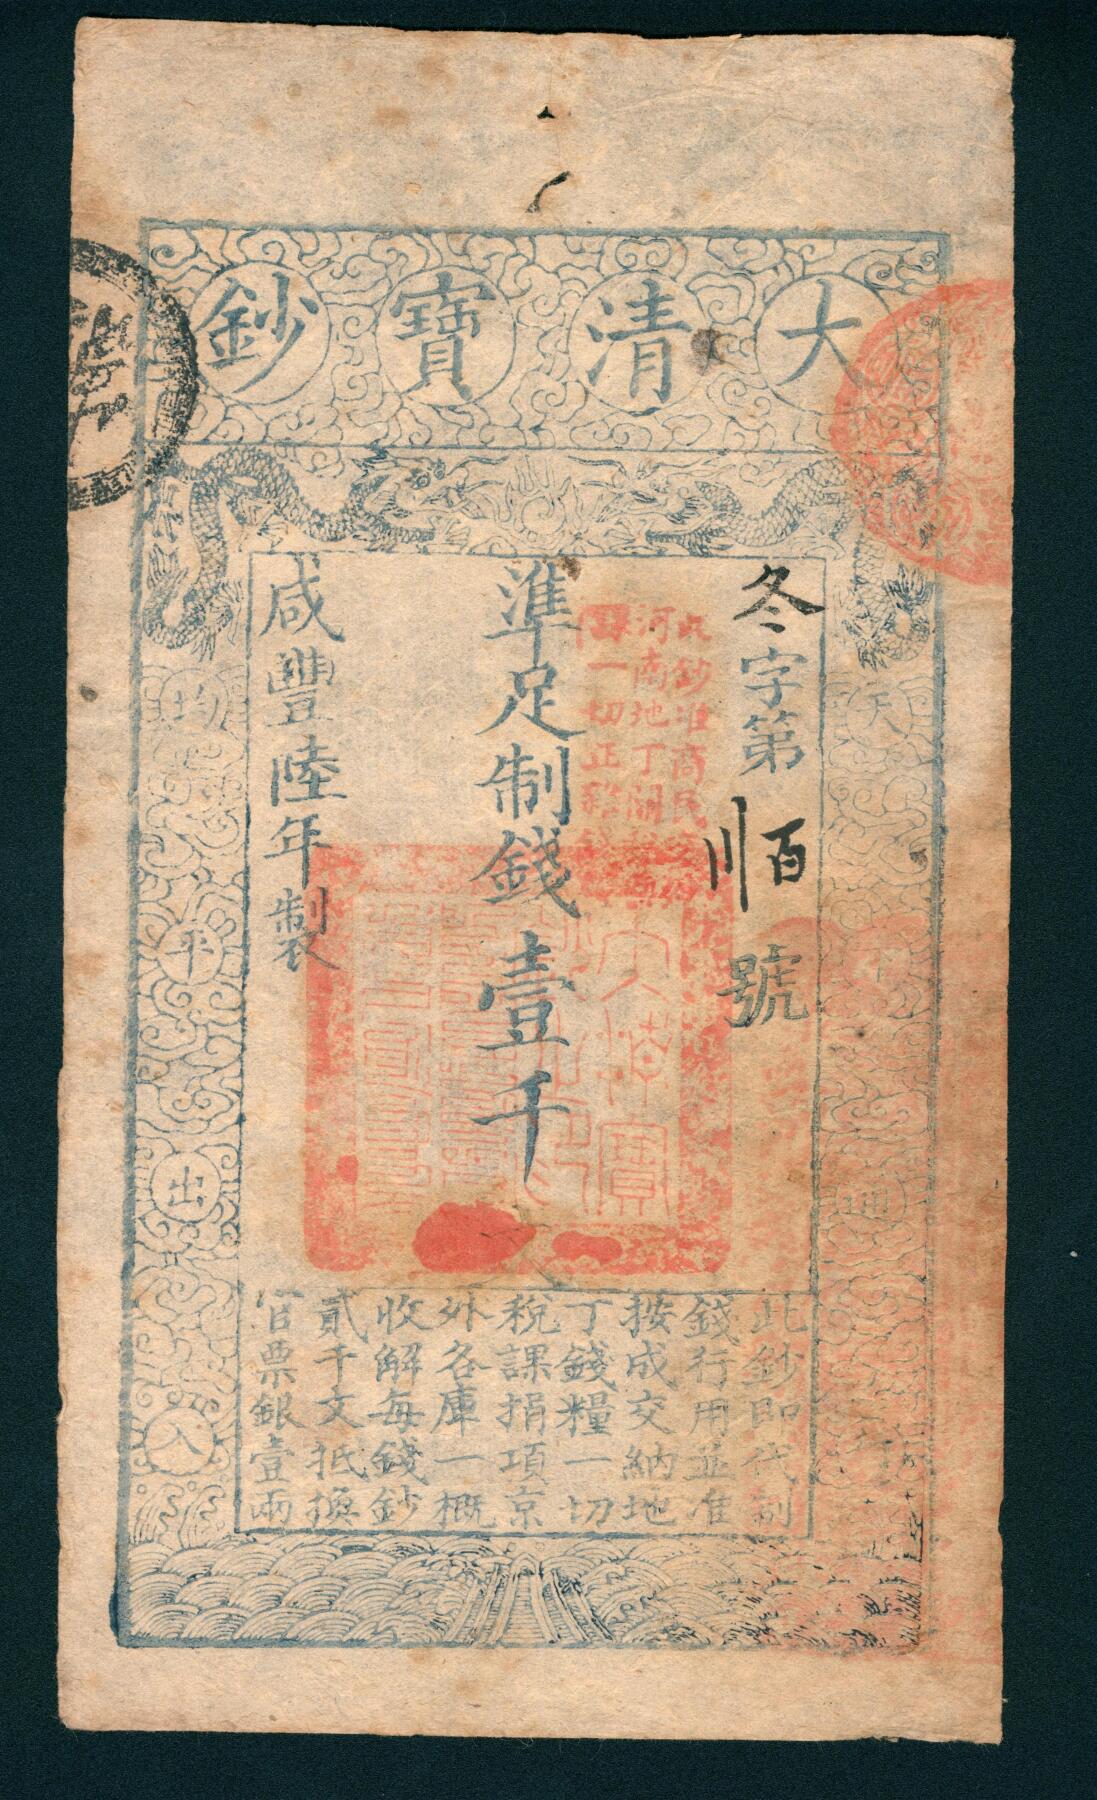 大清寶鈔
冬字第
號
準足制錢壹千
咸豐陸年製
天
均平出入
此鈔即代制
錢行用並准
按成交納地
丁錢糧一切
稅課捐項京
外各庫一概
收解每錢鈔
貳千文抵換
官票銀壹兩
此鈔准商民
河南地丁關
課一切正